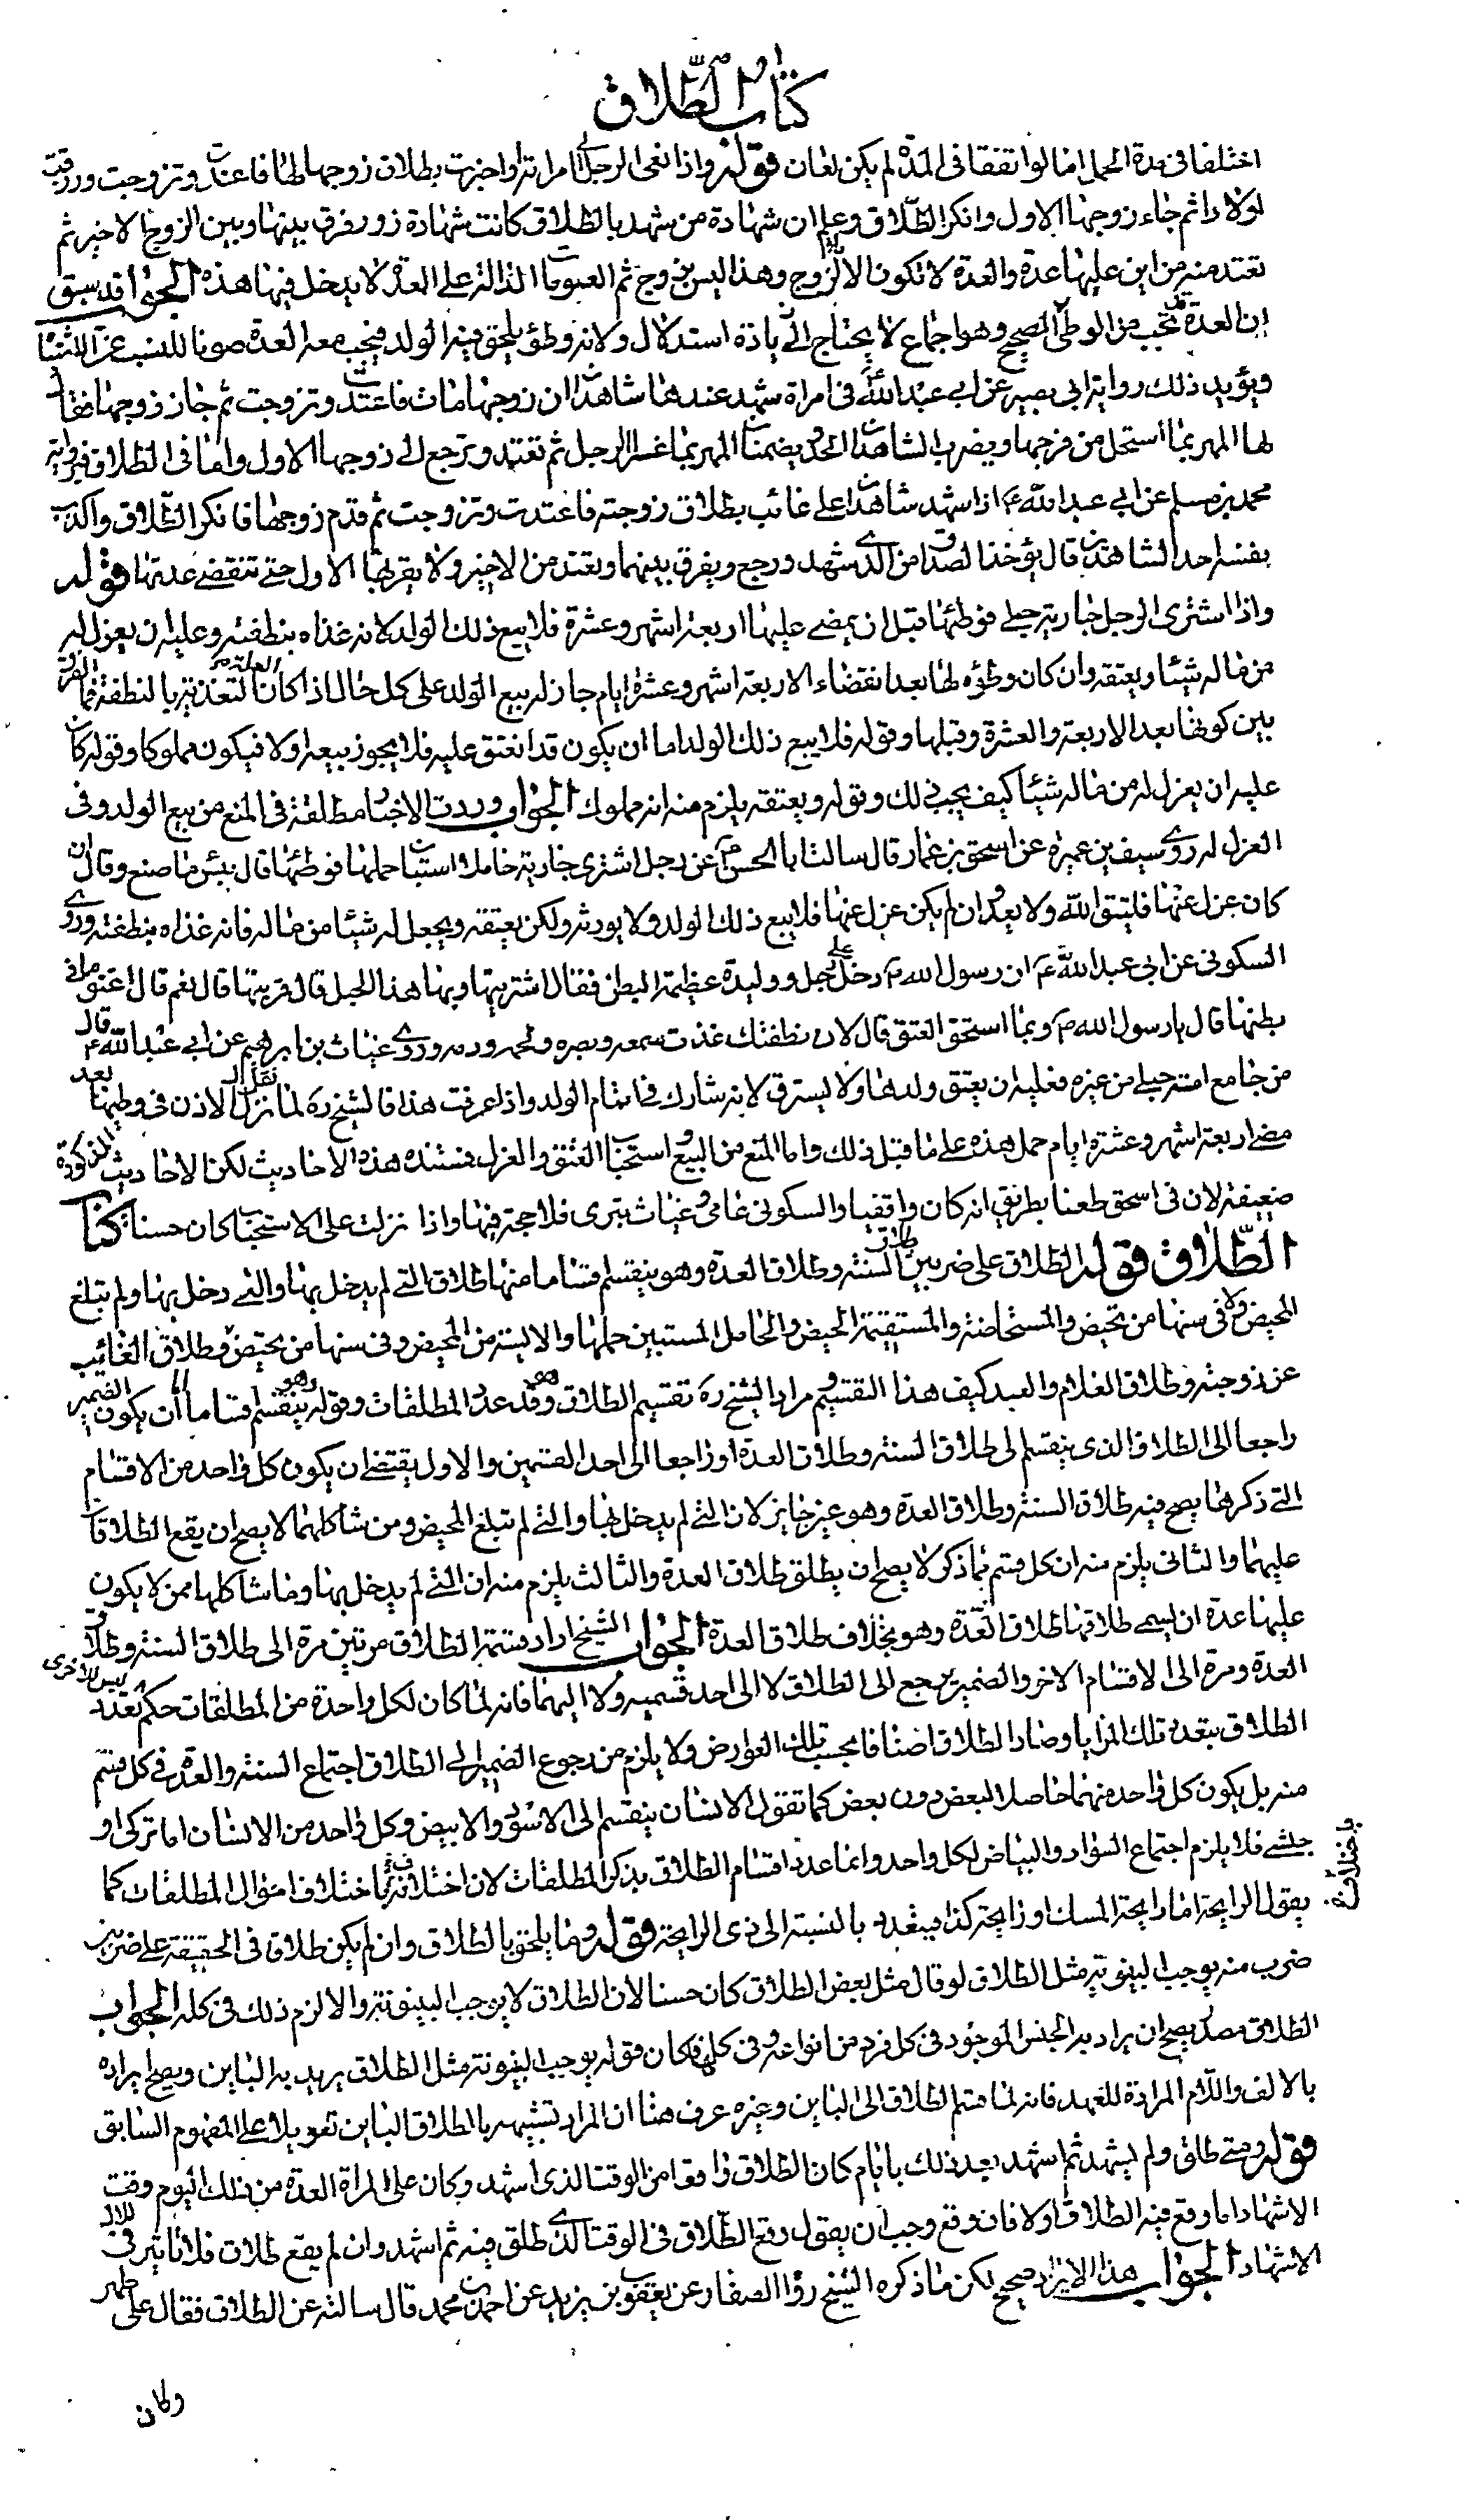 كتاب الطلاق
اختلفا في مدة الحمل اما لو اتفقا في المدة لم يكن لعان قوله واذا نعى الرجل الى امراته او اخبرت بطلاق زوجها لها فاعتدت وتزوجت ورزقت
اولادا ثم جاء زوجها الاول وانكر الطلاق وعلم ان شهادة من شهد بالطلاق كانت شهادة زور فرق بينها وبين الزوج الاخير ثم
تعتد منه من اين عليها عدة والعدة لا تكون الا لزوج وهذا ليس بزوج ثم العمومات الدالة على العدة لا يدخل فيها هذه الجواب قد سبق
ان العدة تجب من الوطئ الصحيح وهو اجماع لا يحتاج الى زيادة استدلال ولانه وطؤ يلحق فيه الولد فيجب معه العدة صونا للنسب عن
ويؤيد ذلك رواية ابي بصير عن ابي عبد الله ع في امراة شهد عندها شاهدان ان زوجها مات فاعتدت وتزوجت ثم جاء زوجها فقال
لها المهر بما استحل من فرجها ويضرب الشاهدان الحد ويضمنان المهر بما غرا الرجل ثم تعتد وترجع الى زوجها الاول واما في الطلاق فبرواية
محمد بن مسلم عن ابي عبد الله ع اذا شهد شاهدان على غائب بطلاق زوجته فاعتدت وتزوجت ثم قدم زوجها فانكر الطلاق واكذب
نفسه احد الشاهدين قال يؤخذ الصداق من الذي شهد ورجع ويفرق بينهما وتعتد من الاخير ولا يقربها الاول حتى تنقضي عدتها قوله
واذا اشترى الرجل جارية حبلى فوطئها قبل ان يمضي عليها اربعة اشهر وعشرة فلا يبيع ذلك الولد لانه غذاه بنطفته وعليه ان يعزل له
من ماله شيئا ويعتقه وان كان وطؤه لها بعد انقضاء الاربعة اشهر وعشرة ايام جاز له بيع الولد على كل حال اذا كان العلة التغذية بالنطفة فما الفرق
بين كونها بعد الاربعة والعشرة وقبلها وقوله فلا يبيع ذلك الولد اما ان يكون قد انعتق عليه فلا يجوز بيعه اولا فيكون مملوكا وقوله كان
عليه ان يعزل له من ماله شيئا كيف يجب ذلك وقوله ويعتقه يلزم منه انه مملوك الجواب وردت الاخبار مطلقة في المنع من بيع الولد وفي
العزل له روى سيف بن عميرة عن اسحق بن عمار قال سالت ابا الحسن ع عن رجل اشترى جارية حاملا استبان حملها فوطئها قال بئس ما صنع وقال ان
كان عزل عنها فليتق الله ولا يعود وان لم يكن عزل عنها فلا يبيع ذلك الولد ولا يورثه ولكن يعتقه ويجعل له شيئا من ماله فانه غذاه بنطفته وروى
السكوني عن ابي عبد الله ع ان رسول الله ص دخل على رجل ووليدة عظيمة البطن فقال اشتريتها وبها هذا الحبل قال قربتها قال نعم قال اعتق ما في
بطنها قال يا رسول الله ص وبما استحق العتق قال لان نطفتك غذت سمعه وبصره ولحمه ودمه وروى غياث بن ابرهيم عن ابي عبد الله ع قال
من جامع امة حبلى من غيره فعليه ان يعتق ولدها ولا يسترق لانه شارك في اتمام الولد واذا عرفت هذا فالشيخ ره لما نزل الاذن في وطيها بعد
مضي اربعة اشهر وعشرة ايام حمل هذه على ما قبل ذلك واما المنع من البيع واستحباب العتق والعزل فمستنده هذه الاحاديث لكن الاحاديث المذكورة
ضعيفة لان في اسحق طعنا بطريق انه كان واقفيا والسكوني عامي وغياث بتري فلا حجة فيها واذا نزلت على الاستحباب كان حسنا كتاب
الطلاق قوله الطلاق على ضربين طلاق السنة وطلاق العدة وهو ينقسم اقساما منها طلاق التي لم يدخل بها والتي دخل بها ولم تبلغ
المحيض ولا في سنها من تحيض والمستحاضة والمستقيمة الحيض والحامل المستبين حملها والايسة من المحيض وفي سنها من تحيض وطلاق الغائب
عن زوجته وطلاق الغلام والعبد كيف هذا التقسيم ومراد الشيخ ره تقسيم الطلاق وقد عدد المطلقات وقوله وهو ينقسم اقساما اما ان يكون الضمير
راجعا الى الطلاق الذي ينقسم الى طلاق السنة وطلاق العدة او راجعا الى احد القسمين والاول يقتضي ان يكون كل واحد من الاقسام
التي ذكرها يصح فيه طلاق السنة وطلاق العدة وهو غير جايز لان التي لم يدخل بها والتي لم تبلغ المحيض ومن شاكلهما لا يصح ان يقع الطلاقان
عليهما والثاني يلزم منه ان كل قسم مما ذكر لا يصح ان يطلق طلاق العدة والثالث يلزم منه ان التي لم يدخل بها وما شاكلها ممن لا يكون
عليها عدة ان يسمى طلاقها طلاق العدة وهو بخلاف طلاق العدة الجواب الشيخ اراد قسمة الطلاق مرتين مرة الى طلاق السنة وطلاق
العدة ومرة الى الاقسام الاخر والضمير يرجع الى الطلاق لا الى احد قسميه ولا اليهما فانه لما كان لكل واحدة من المطلقات حكم ليس للاخرى تعدد
الطلاق بتعدد تلك المزايا وصار الطلاق اصنافا بحسب تلك العوارض ولا يلزم من رجوع الضمير الى الطلاق اجتماع السنة والعدة في كل قسم
منه بل يكون كل واحد منهما حاصلا لبعض دون بعض كما تقول الانسان ينقسم الى الاسود والابيض وكل واحد من الانسان اما تركي او
حبشي فلا يلزم اجتماع السواد والبياض لكل واحد وانما عدد اقسام الطلاق بذكر المطلقات لان اختلافه انما اختلاف احوال المطلقات كما
باختلاف
يقول الرايحة اما رايحة المسك او رايحة كذا فيتعدد بالنسبة الى ذي الرايحة قوله وما يلحق بالطلاق وان لم يكن طلاق في الحقيقة على ضربين
ضرب منه يوجب البينونة مثل الطلاق لو قال مثل بعض الطلاق كان حسنا لان الطلاق لا يوجب البينونة والا لزم ذلك في كله الجواب
الطلاق مصدر يصح ان يراد به الجنس الموجود في كل فرد من انواعه وفي كلها فكان قوله يوجب البينونة مثل الطلاق يريد به الباين ويصح ايراده
بالالف واللام المرادة للعهد فانه لما قسم الطلاق الى الباين وغيره عرف هنا ان المراد تشبيهه بالطلاق الباين تعويلا على المفهوم السابق
قوله ومتى طلق ولم يشهد ثم اشهد بعد ذلك بايام كان الطلاق واقعا من الوقت الذي اشهد وكان على المراة العدة من ذلك اليوم وقت
الاشهاد اما وقع فيه الطلاق اولا فان وقع وجب ان يقول وقع الطلاق في الوقت الذي طلق فيه ثم اشهد وان لم يقع طلاق فلا تاثير في
الاشهاد الجواب هذا الايراد صحيح لكن ما ذكره الشيخ رواه الصفار عن يعقوب بن يزيد عن احمد بن محمد قال سالته عن الطلاق فقال على طهر
وكان